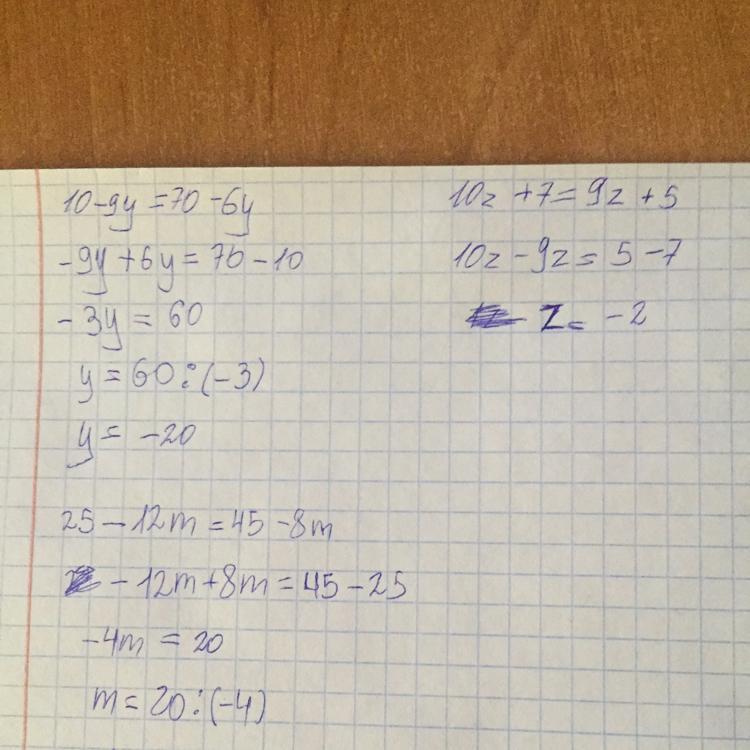 10-9y=70-6y
-9y+6y=70-10
-3y=60
y=60:(-3)
y=-20
25-12m=45-8m
-12m+8m=45-25
-4m=20
m=20:(-4)
10z+7=9z+5
10z-9z=5-7
z=-2